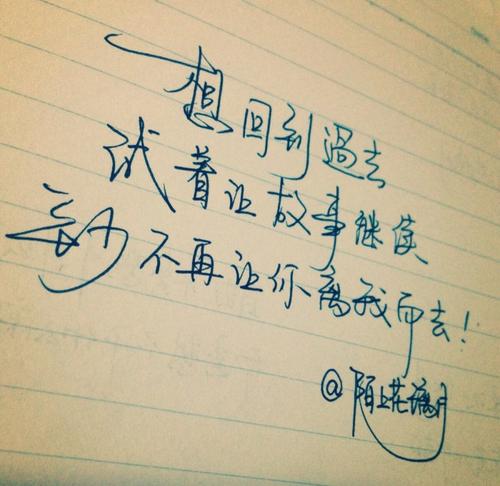 想回到過去
试着让故事继续
至少不再让你离我而去!
@陌上花